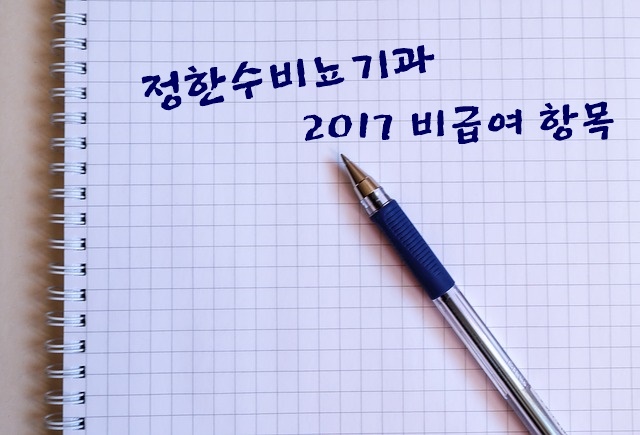 정한수비뇨기과
2017 비급여 항목